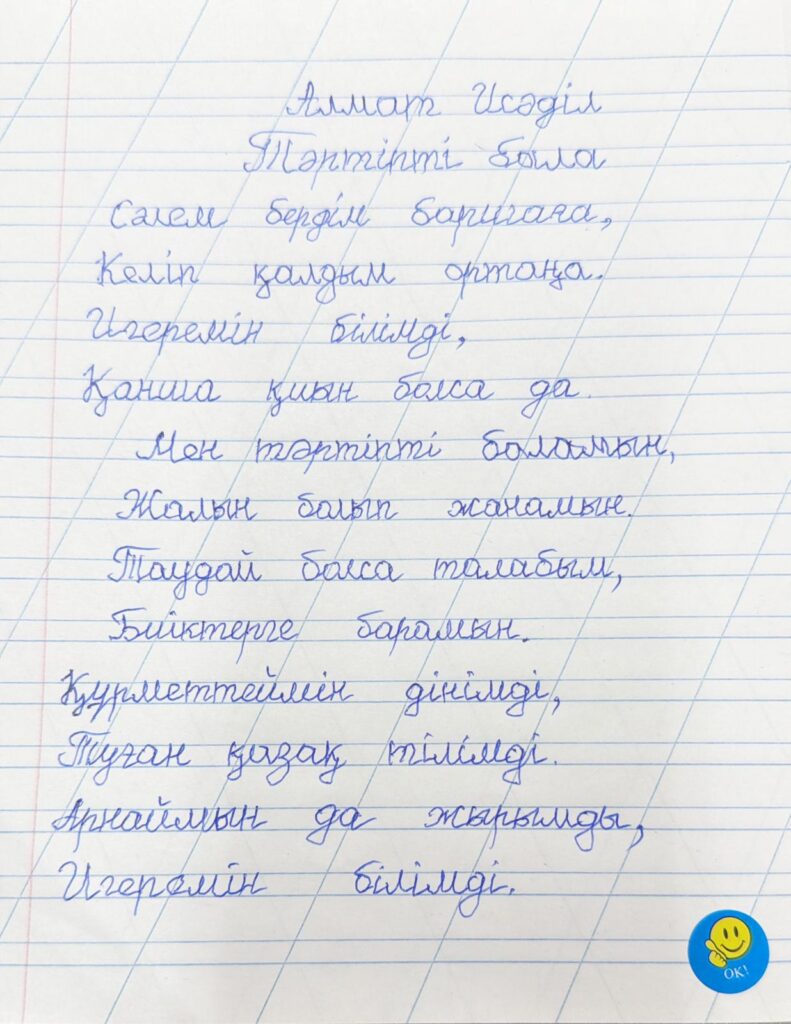 Алмат Исәділ
Тәртіпті бала
Сәлем бердім баршаңа,
Келіп қалдым ортаңа.
Игеремін білімді,
Қанша қиын болса да.
Мен тәртіпті баламын,
Жалын болып жанамын.
Таудай болса талабым,
Биіктерге барамын.
Құрметтеймін дінімді,
Туған қазақ тілімді.
Арнаймын да жырымды,
Игеремін білімді.
OK!